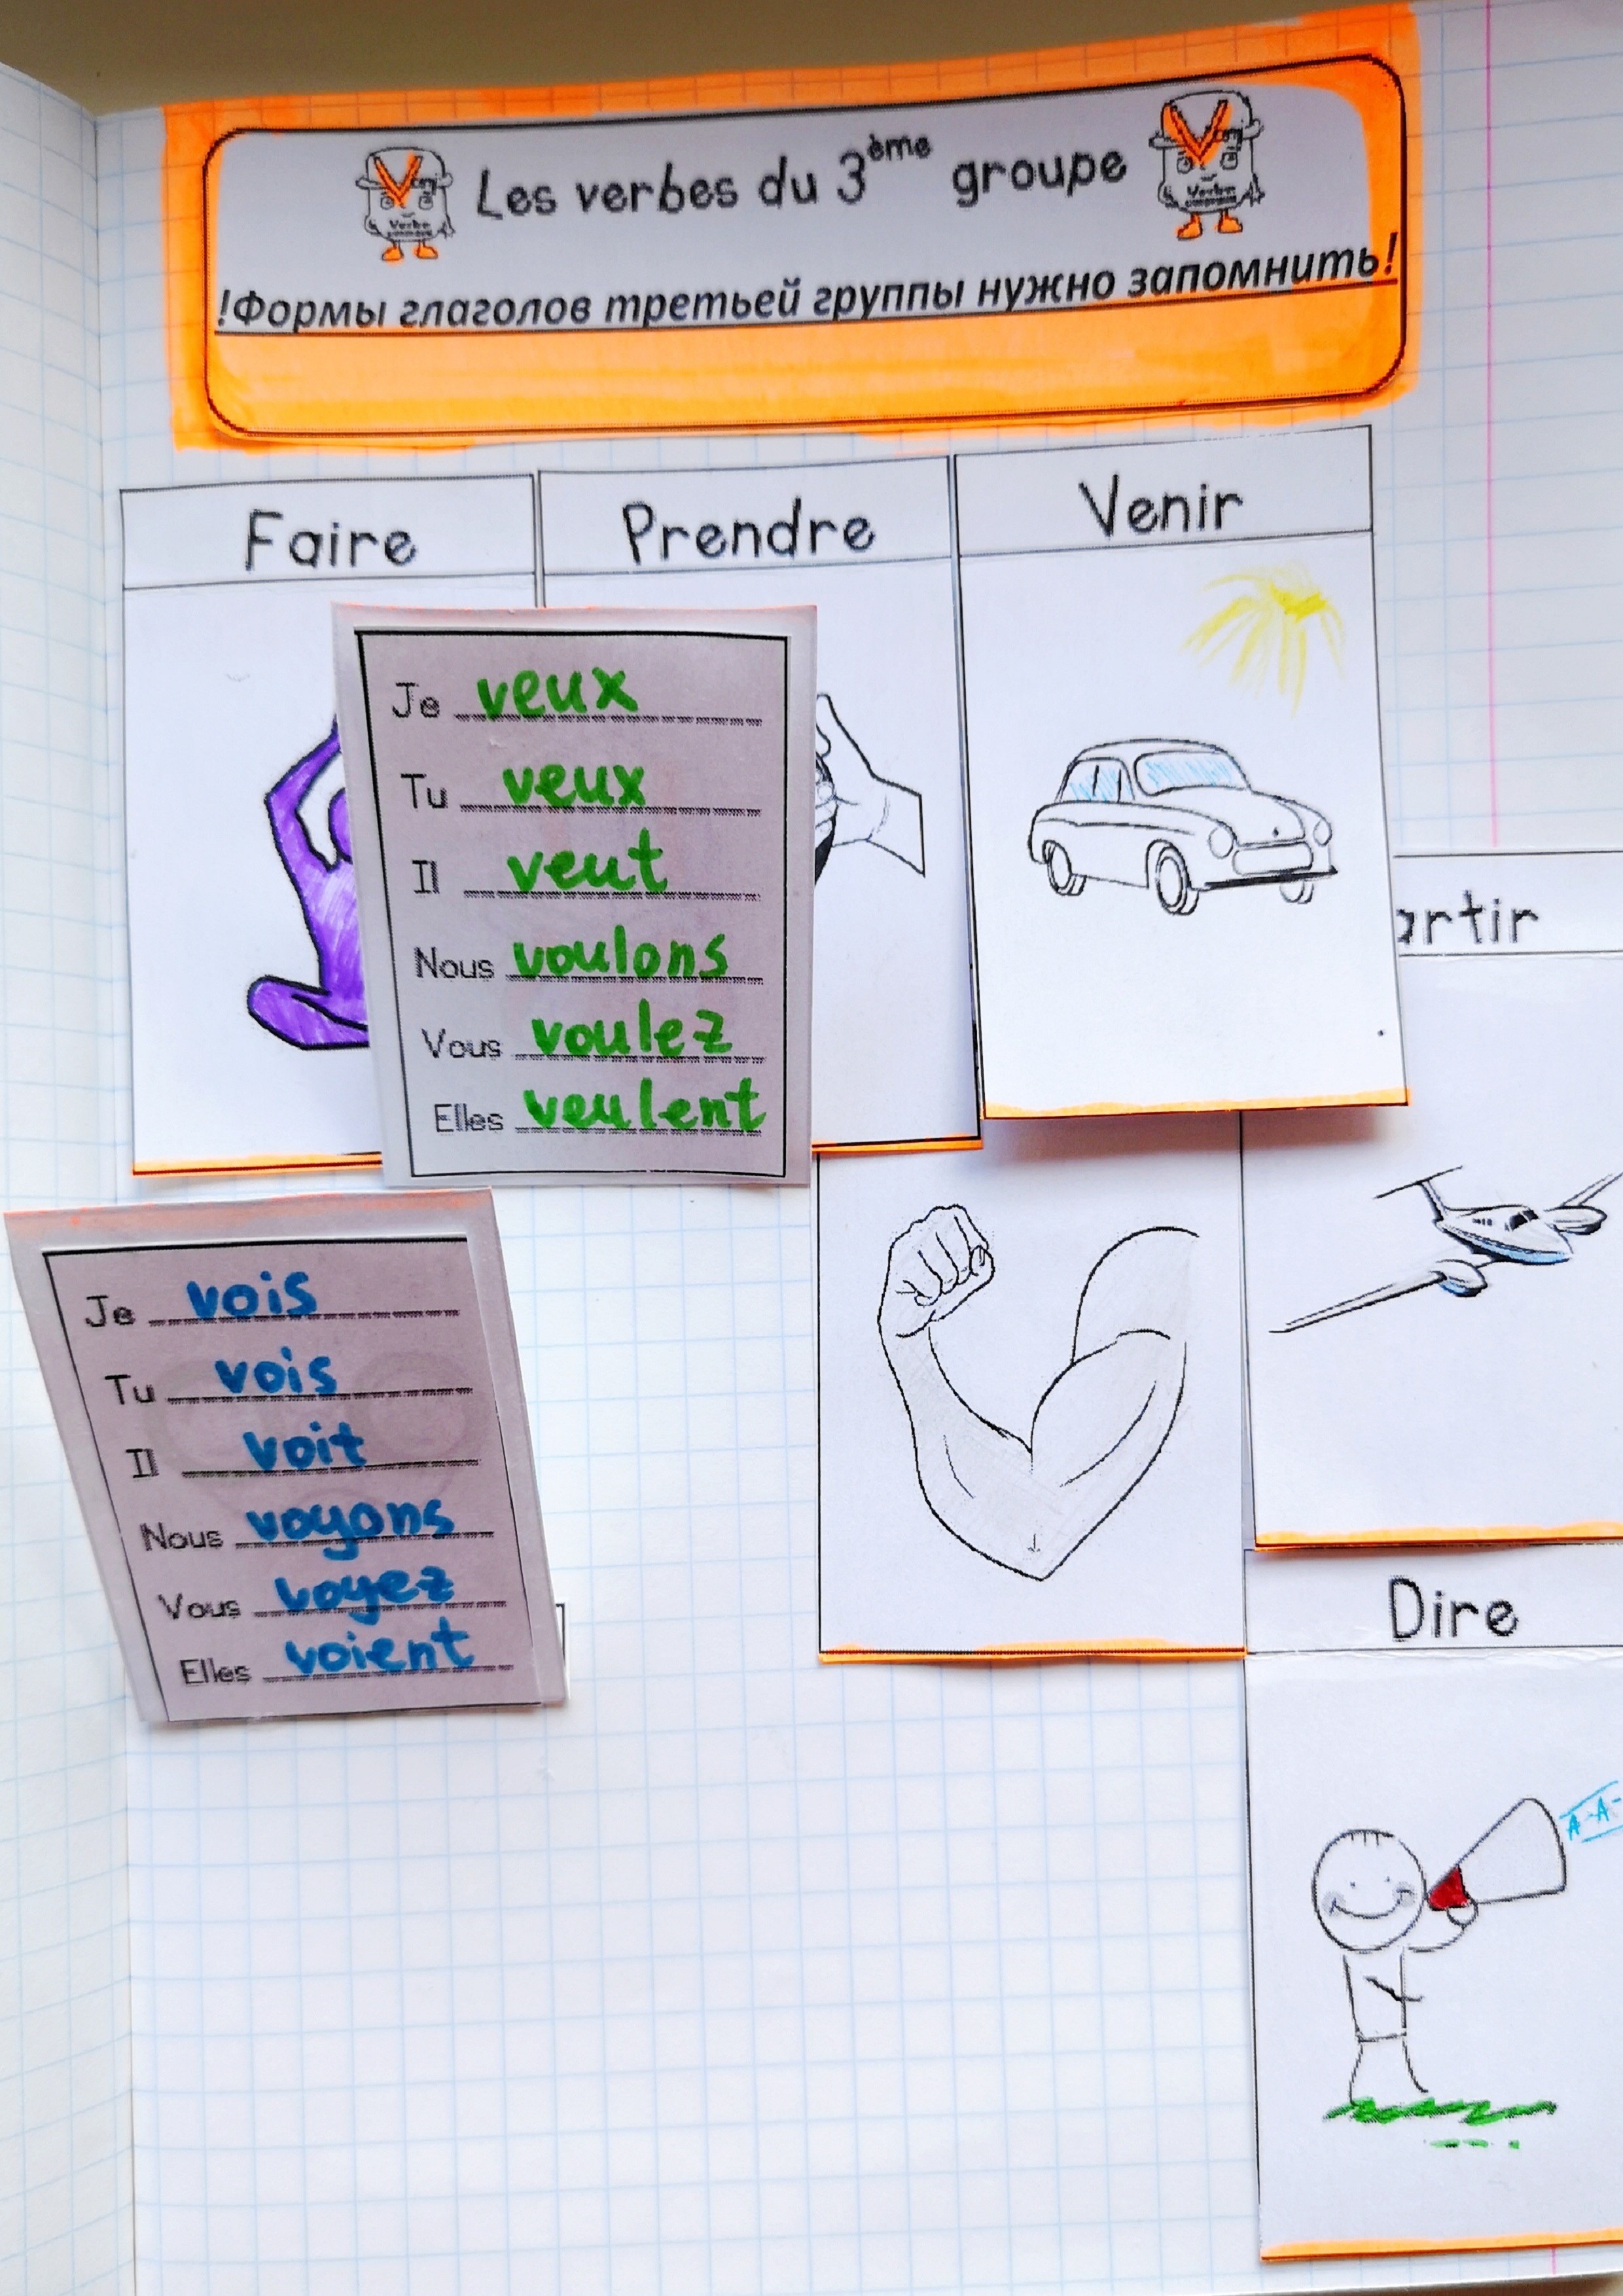 Les verbes du 3ème groupe
!Формы глаголов третьей группы нужно запомнить!
Faire
Prendre
Venir
Je veux
Tu veux
Il veut
Nous voulons
Vous voulez
Elles veulent
artir
Je vois
Tu vois
Il voit
Nous voyons
Vous voyez
Elles voient
Dire
A-A-